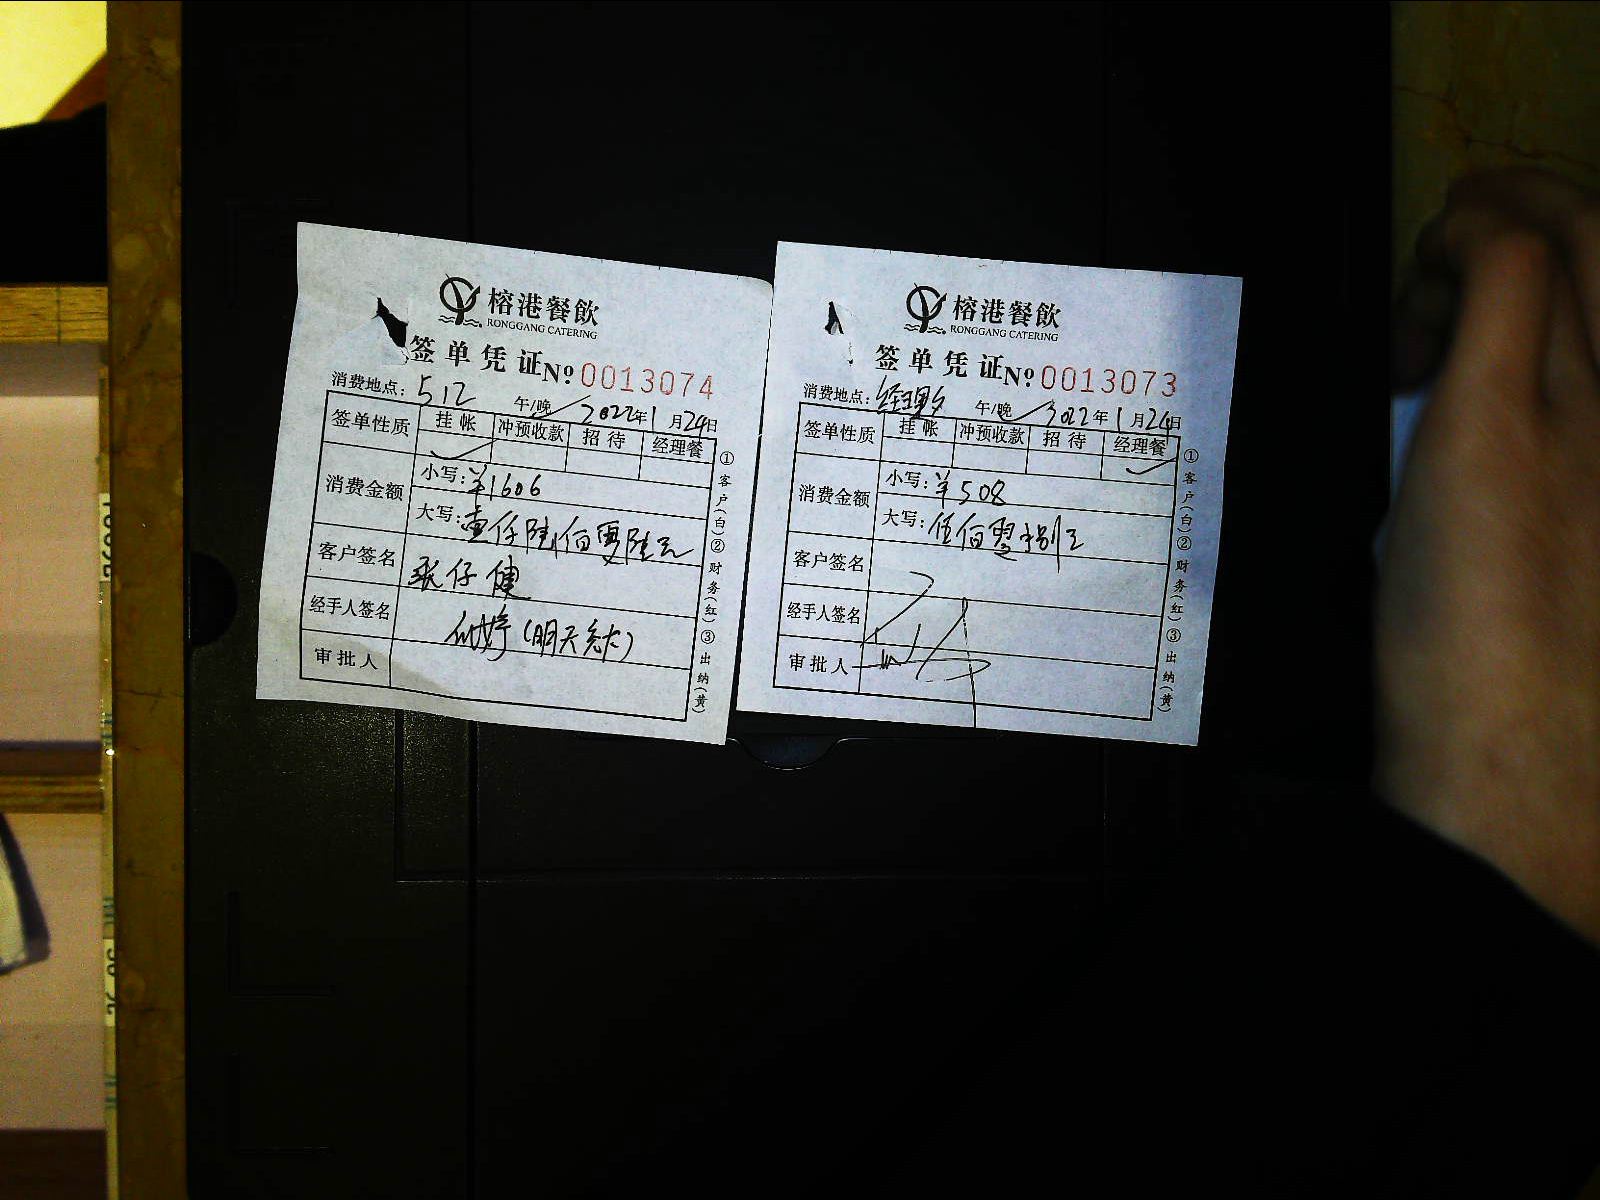 榕港餐飲
RONGGANG CATERING
签单凭证 № 0013074
消费地点: 512 午/晚 2022年1月24日
签单性质 挂帐 冲预收款 招待 经理餐
消费金额 小写: ¥1606
大写: 壹仟陆佰零陆元
客户签名 张仔健
经手人签名 (明天
审批人
①客户(白)②财务(红)③出纳(黄)
榕港餐飲
RONGGANG CATERING
签单凭证 № 0013073
消费地点: 经理 午/晚 2022年1月24日
签单性质 挂帐 冲预收款 招待 经理餐
消费金额 小写: ¥508
大写: 伍佰零捌元
客户签名
经手人签名
审批人
①客户(白)②财务(红)③出纳(黄)